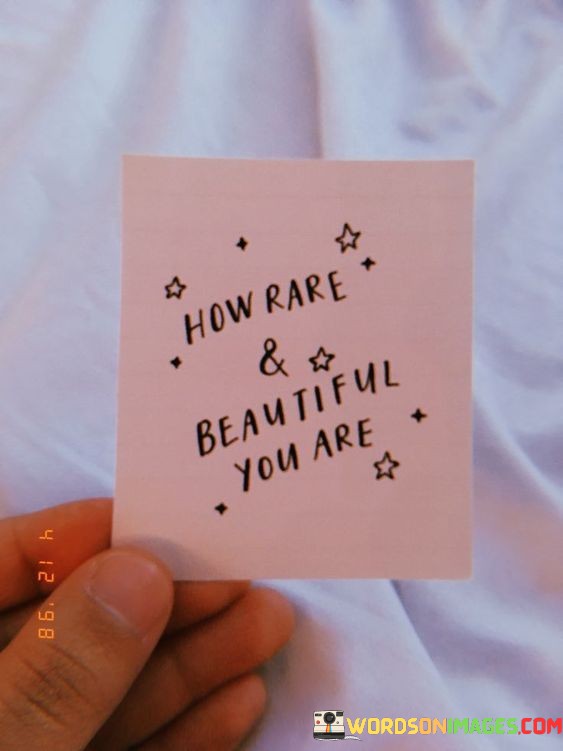 HOW RARE
&
BEAUTIFUL
YOU ARE
4 12 '98
WORDSONIMAGES.COM